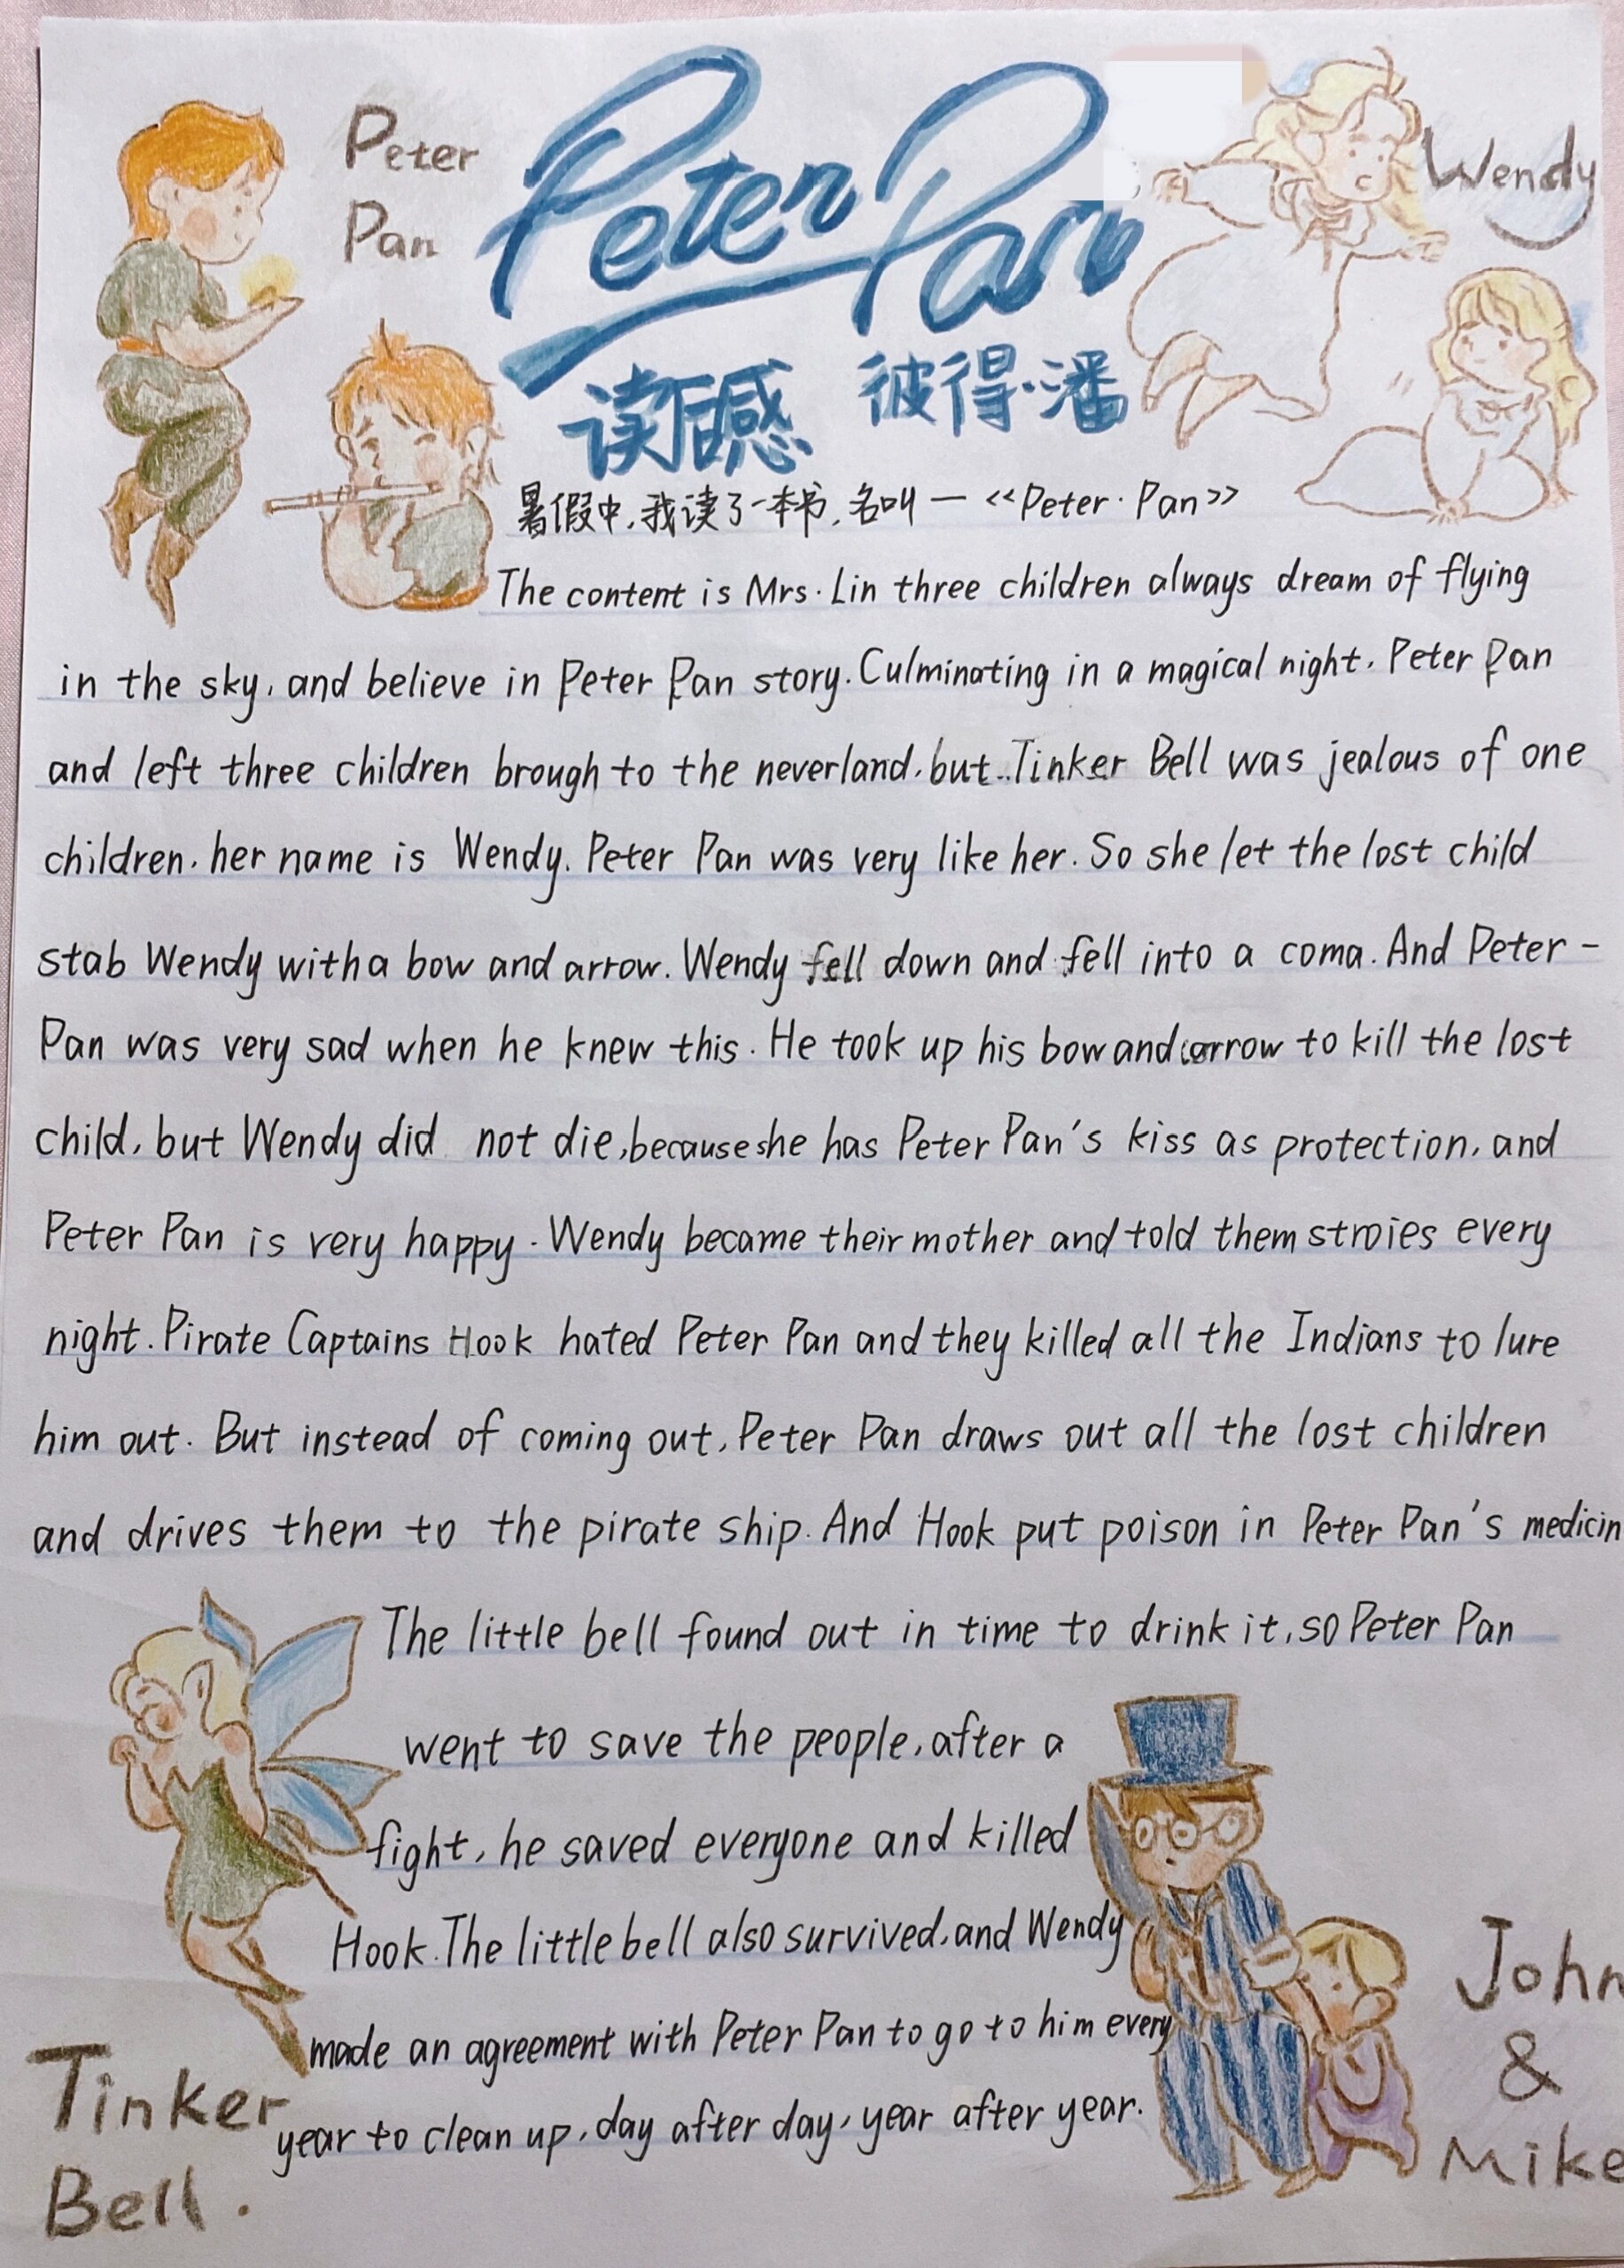 Peter Pan
Peter
Pan
Wendy
读后感 彼得·潘
暑假中,我读了一本书,名叫—<<Peter·Pan>>
The content is Mrs. Lin three children always dream of flying
in the sky, and believe in Peter Pan story. Culminating in a magical night, Peter Pan
and left three children brough to the neverland, but Tinker Bell was jealous of one
children, her name is Wendy. Peter Pan was very like her. So she let the lost child
stab Wendy with a bow and arrow. Wendy fell down and fell into a coma. And Peter-
Pan was very sad when he knew this. He took up his bow and arrow to kill the lost
child, but Wendy did not die, because she has Peter Pan's kiss as protection, and
Peter Pan is very happy. Wendy became their mother and told them stroies every
night. Pirate Captains Hook hated Peter Pan and they killed all the Indians to lure
him out. But instead of coming out, Peter Pan draws out all the lost children
and drives them to the pirate ship. And Hook put poison in Peter Pan's medicin
The little bell found out in time to drink it, so Peter Pan
went to save the people, after a
fight, he saved everyone and killed
Hook. The little bell also survived, and Wendy
made an agreement with Peter Pan to go to him every
year to clean up, day after day, year after year.
Tinker
Bell.
John
&
Mike